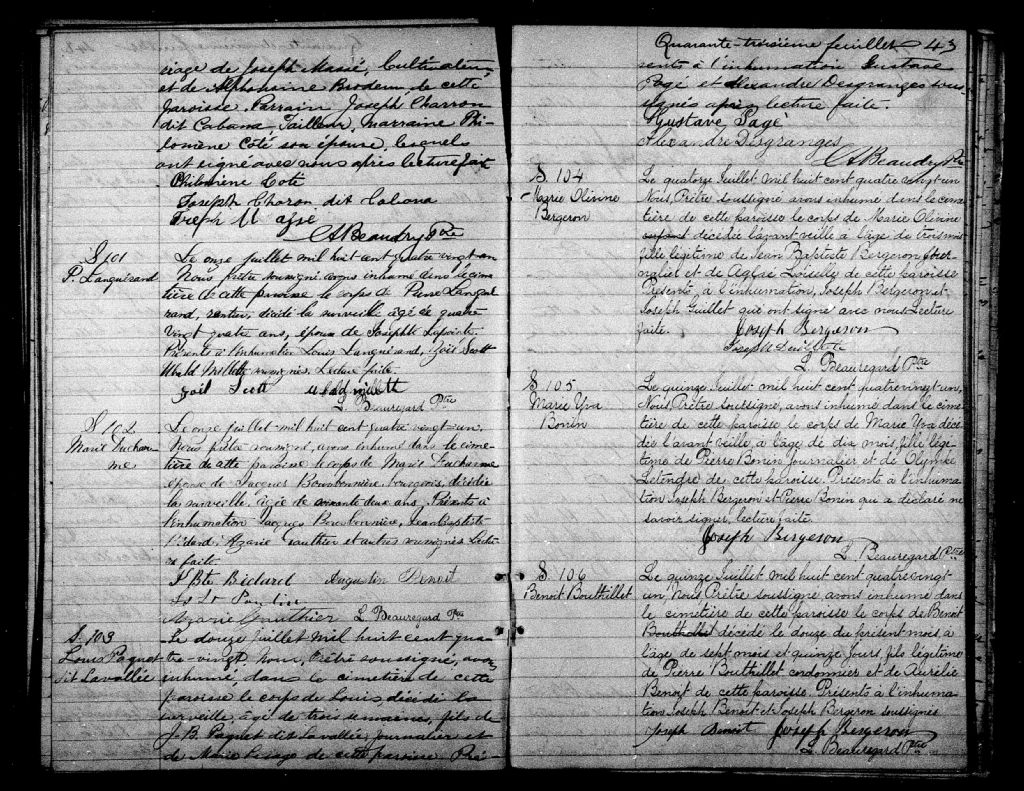 ciage de Joseph Massé, Cultivateur,
et de Alphonsine Brodeur de cette
paroisse. Parrain Joseph Charron
dit Cabana, Tailleur, marraine Phi-
lomène Coté son épouse, lesquels
ont signé avec nous après lecture faite
Philomène Cote
Joseph Charon dit Cabana
Joseph Masse
A Beaudry Ptre
S 101
P. Languirand
Le onze juillet mil huit cent quatre vingt un
Nous Prêtre soussigné avons inhumé dans le cime
tière de cette paroisse le corps de Pierre Langui
rand, rentier, décédé la surveille âgé de quatre
vingt quatre ans, époux de Josephte Lapointe.
Présents à l'inhumation Louis Languirand, Zoïl Scott
Ubald Millette soussignés. Lecture faite.
Zoil Scott ubald millett
L. Beauregard Ptre
S 102
Marie Duchar
me
Le onze juillet mil huit cent quatre vingt un.
Nous Prêtre soussigné, avons inhumé dans le cime-
tière de cette paroisse le corps de Marie Ducharme
épouse de Jacques Bourbonnière, bourgeois, décédée
la surveille, âgée de soixante deux ans. Présents à
l'inhumation Jacques Bourbonnière, Jean Baptiste
Bédard, Azarie Gauthier et autres soussignés Lectu
re faite.
J Bte Bédard Augustin Benoit
Azarie Gauthier L. Beauregard Ptre
S. 103
Louis Paquet
dit Lavallée
Le douze Juillet mil huit cent qua
tre-vingt. Nous, Prêtre soussigné, avons
inhumé, dans le cimetière de cette
paroisse le corps de Louis, décédé la
surveille, âgé de trois semaines, fils de
J. B. Paquet dit Lavallée, journalier et
de Marie Lesage de cette paroisse Pré-
Quarante-troisième feuillet 43
sents à l'inhumation Gustave
Pagé et Alexandre Desgranges sous
signés après lecture faite.
Gustave Pagé
Alexandre Desgranges
A Beaudry Ptre
S 104
Marie Olivine
Bergeron
Le quatorze Juillet mil huit cent quatre vingt-un
Nous, Prêtre soussigné avons inhumé dans le cime
tière de cette paroisse le corps de Marie Olivine
décédée l'avant veille à l'âge de trois mois
fille légitime de Jean Baptiste Bergeron Jour-
nalier et de Aglaé Loiselle de cette paroisse
Présents à l'inhumation, Joseph Bergeron et
Joseph Guillet qui ont signé avec nous Lecture
faite. Joseph Bergeron
L. Beauregard Ptre
S 105
Marie Yva
Bonin
Le quinze Juillet mil huit cent quatre vingt un,
Nous, Prêtre soussigné, avons inhumé dans le cime
tière de cette paroisse le corps de Marie Yva décé
dée l'avant veille, à l'âge de dix mois, fille légi-
time de Pierre Bonin journalier et de Olympe
Letendre de cette paroisse. Présents à l'inhuma
tion Joseph Bergeron et Pierre Bonin qui a déclaré ne
savoir signer, lecture faite.
Joseph Bergeron
L. Beauregard Ptre
S 106
Benoit Bouthillet
Le quinze Juillet mil huit cent quatre vingt-
un, Nous Prêtre soussigné avons inhumé dans
le cimetière de cette paroisse le corps de Benoit
Bouthillet décédé le douze du présent mois, à
l'âge de sept mois et quinze jours, fils légitime
de Pierre Bouthillet cordonnier et de Aurélie
Benoit de cette paroisse. Présents à l'inhuma-
tion Joseph Benoit et Joseph Bergeron soussignés
Joseph Benoit Joseph Bergeron
L. Beauregard Ptre